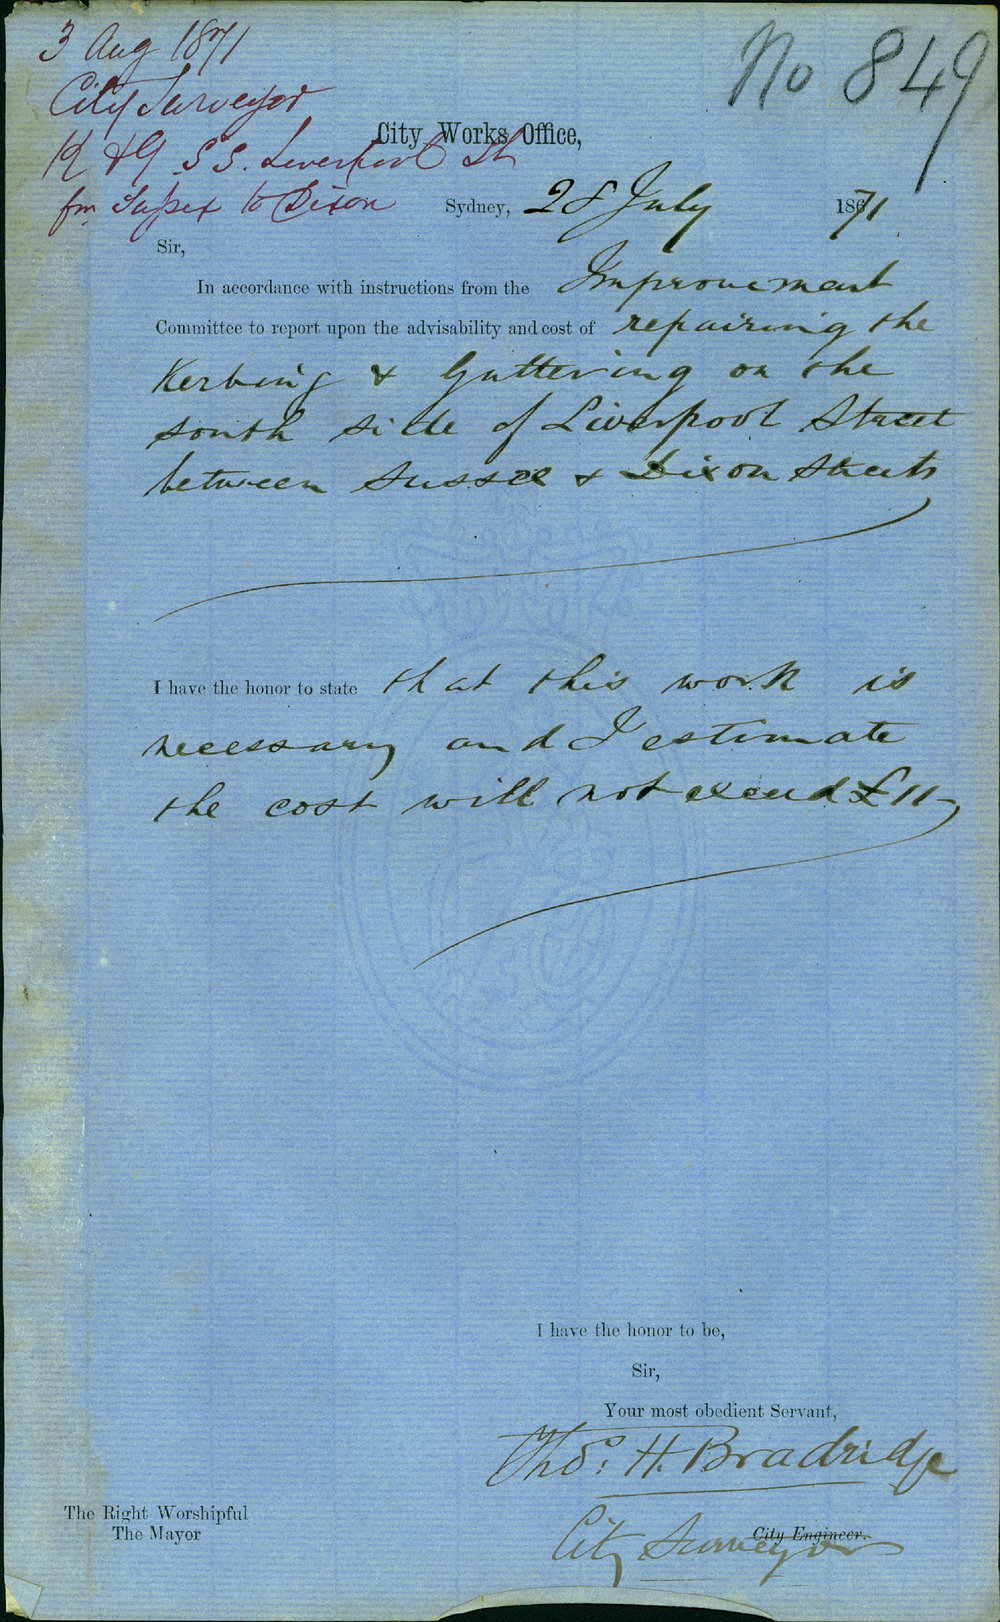 3 Aug 1871
No 849
City Surveyor
City Works Office,
K & G S.S. Liverpool St
fm Sussex to Dixon
Sydney, 28 July 1871
Sir,
In accordance with instructions from the Improvement
Committee to report upon the advisability and cost of repairing the
Kerbing & Guttering on the
south side of Liverpool Street
between Sussex & Dixon Streets
I have the honor to state that this work is
necessary and I estimate
the cost will not exceed £11-
I have the honor to be,
Sir,
Your most obedient Servant,
Thos. H. Bradridge
The Right Worshipful
The Mayor
City Engineer.
City Surveyor